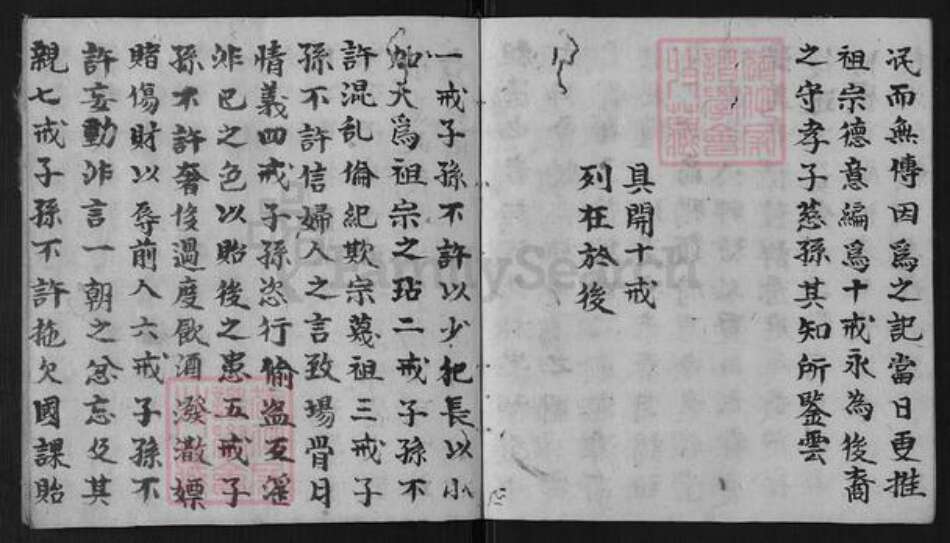 泯而無傳因為之記當日更推
祖宗德意編為十戒永為後裔
之守孝子慈孫其知所鑒雲
具開十戒
列在於後
一戒子孫不許以少犯長以小
加大為祖宗之玷二戒子孫不
許混乱倫紀欺宗蔑祖三戒子
孫不許信婦人之言致場骨月
情義四戒子孫恣行偷盜至淫
非己之色以貽後之患五戒子
孫不許奢侈過度飲酒潑澈嫖
賭傷財以辱前人六戒子孫不
許妄動非言一朝之忿忘及其
親七戒子孫不許拖欠國課貽
FamilySearch